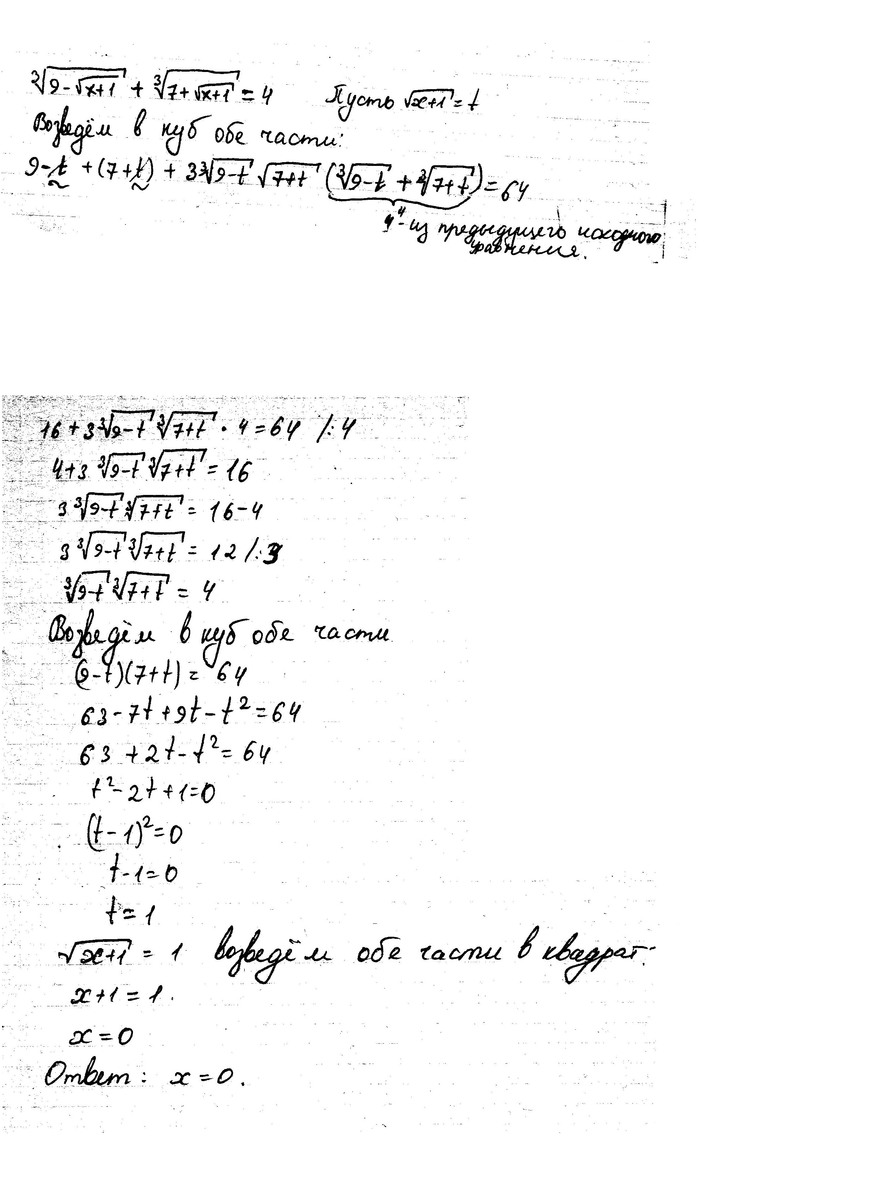 ∛(9-√(x+1)) + ∛(7+√(x+1)) = 4 Пусть √(x+1) = t
Возведём в куб обе части:
9-t + (7+t) + 3∛(9-t) √(7+t) (∛(9-t) + ∛(7+t)) = 64
4 - из предыдущего исходного
уравнения.
16 + 3∛(9-t) ∛(7+t) · 4 = 64 /:4
4+3 ∛(9-t) ∛(7+t) = 16
3 ∛(9-t) ∛(7+t) = 16-4
3 ∛(9-t) ∛(7+t) = 12 /:3
∛(9-t) ∛(7+t) = 4
Возведём в куб обе части
(9-t)(7+t) = 64
63-7t+9t-t² = 64
63+2t-t² = 64
t²-2t+1=0
(t-1)²=0
t-1=0
t=1
√(x+1) = 1 возведём обе части в квадрат:
x+1=1.
x=0
Ответ: x=0.